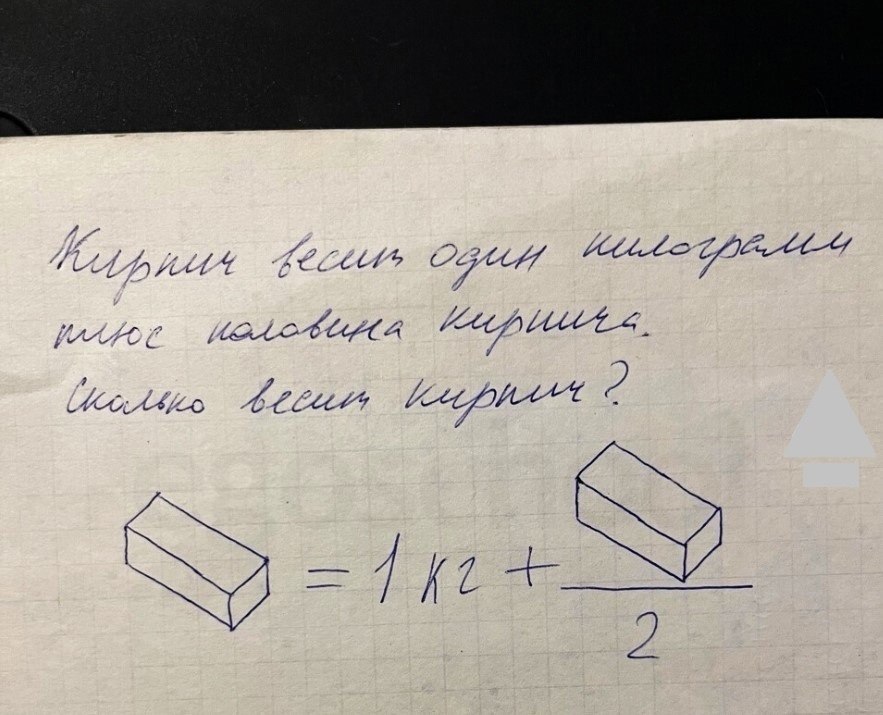 Кирпич весит один килограмм
плюс половина кирпича.
Сколько весит кирпич?
= 1 кг +
2